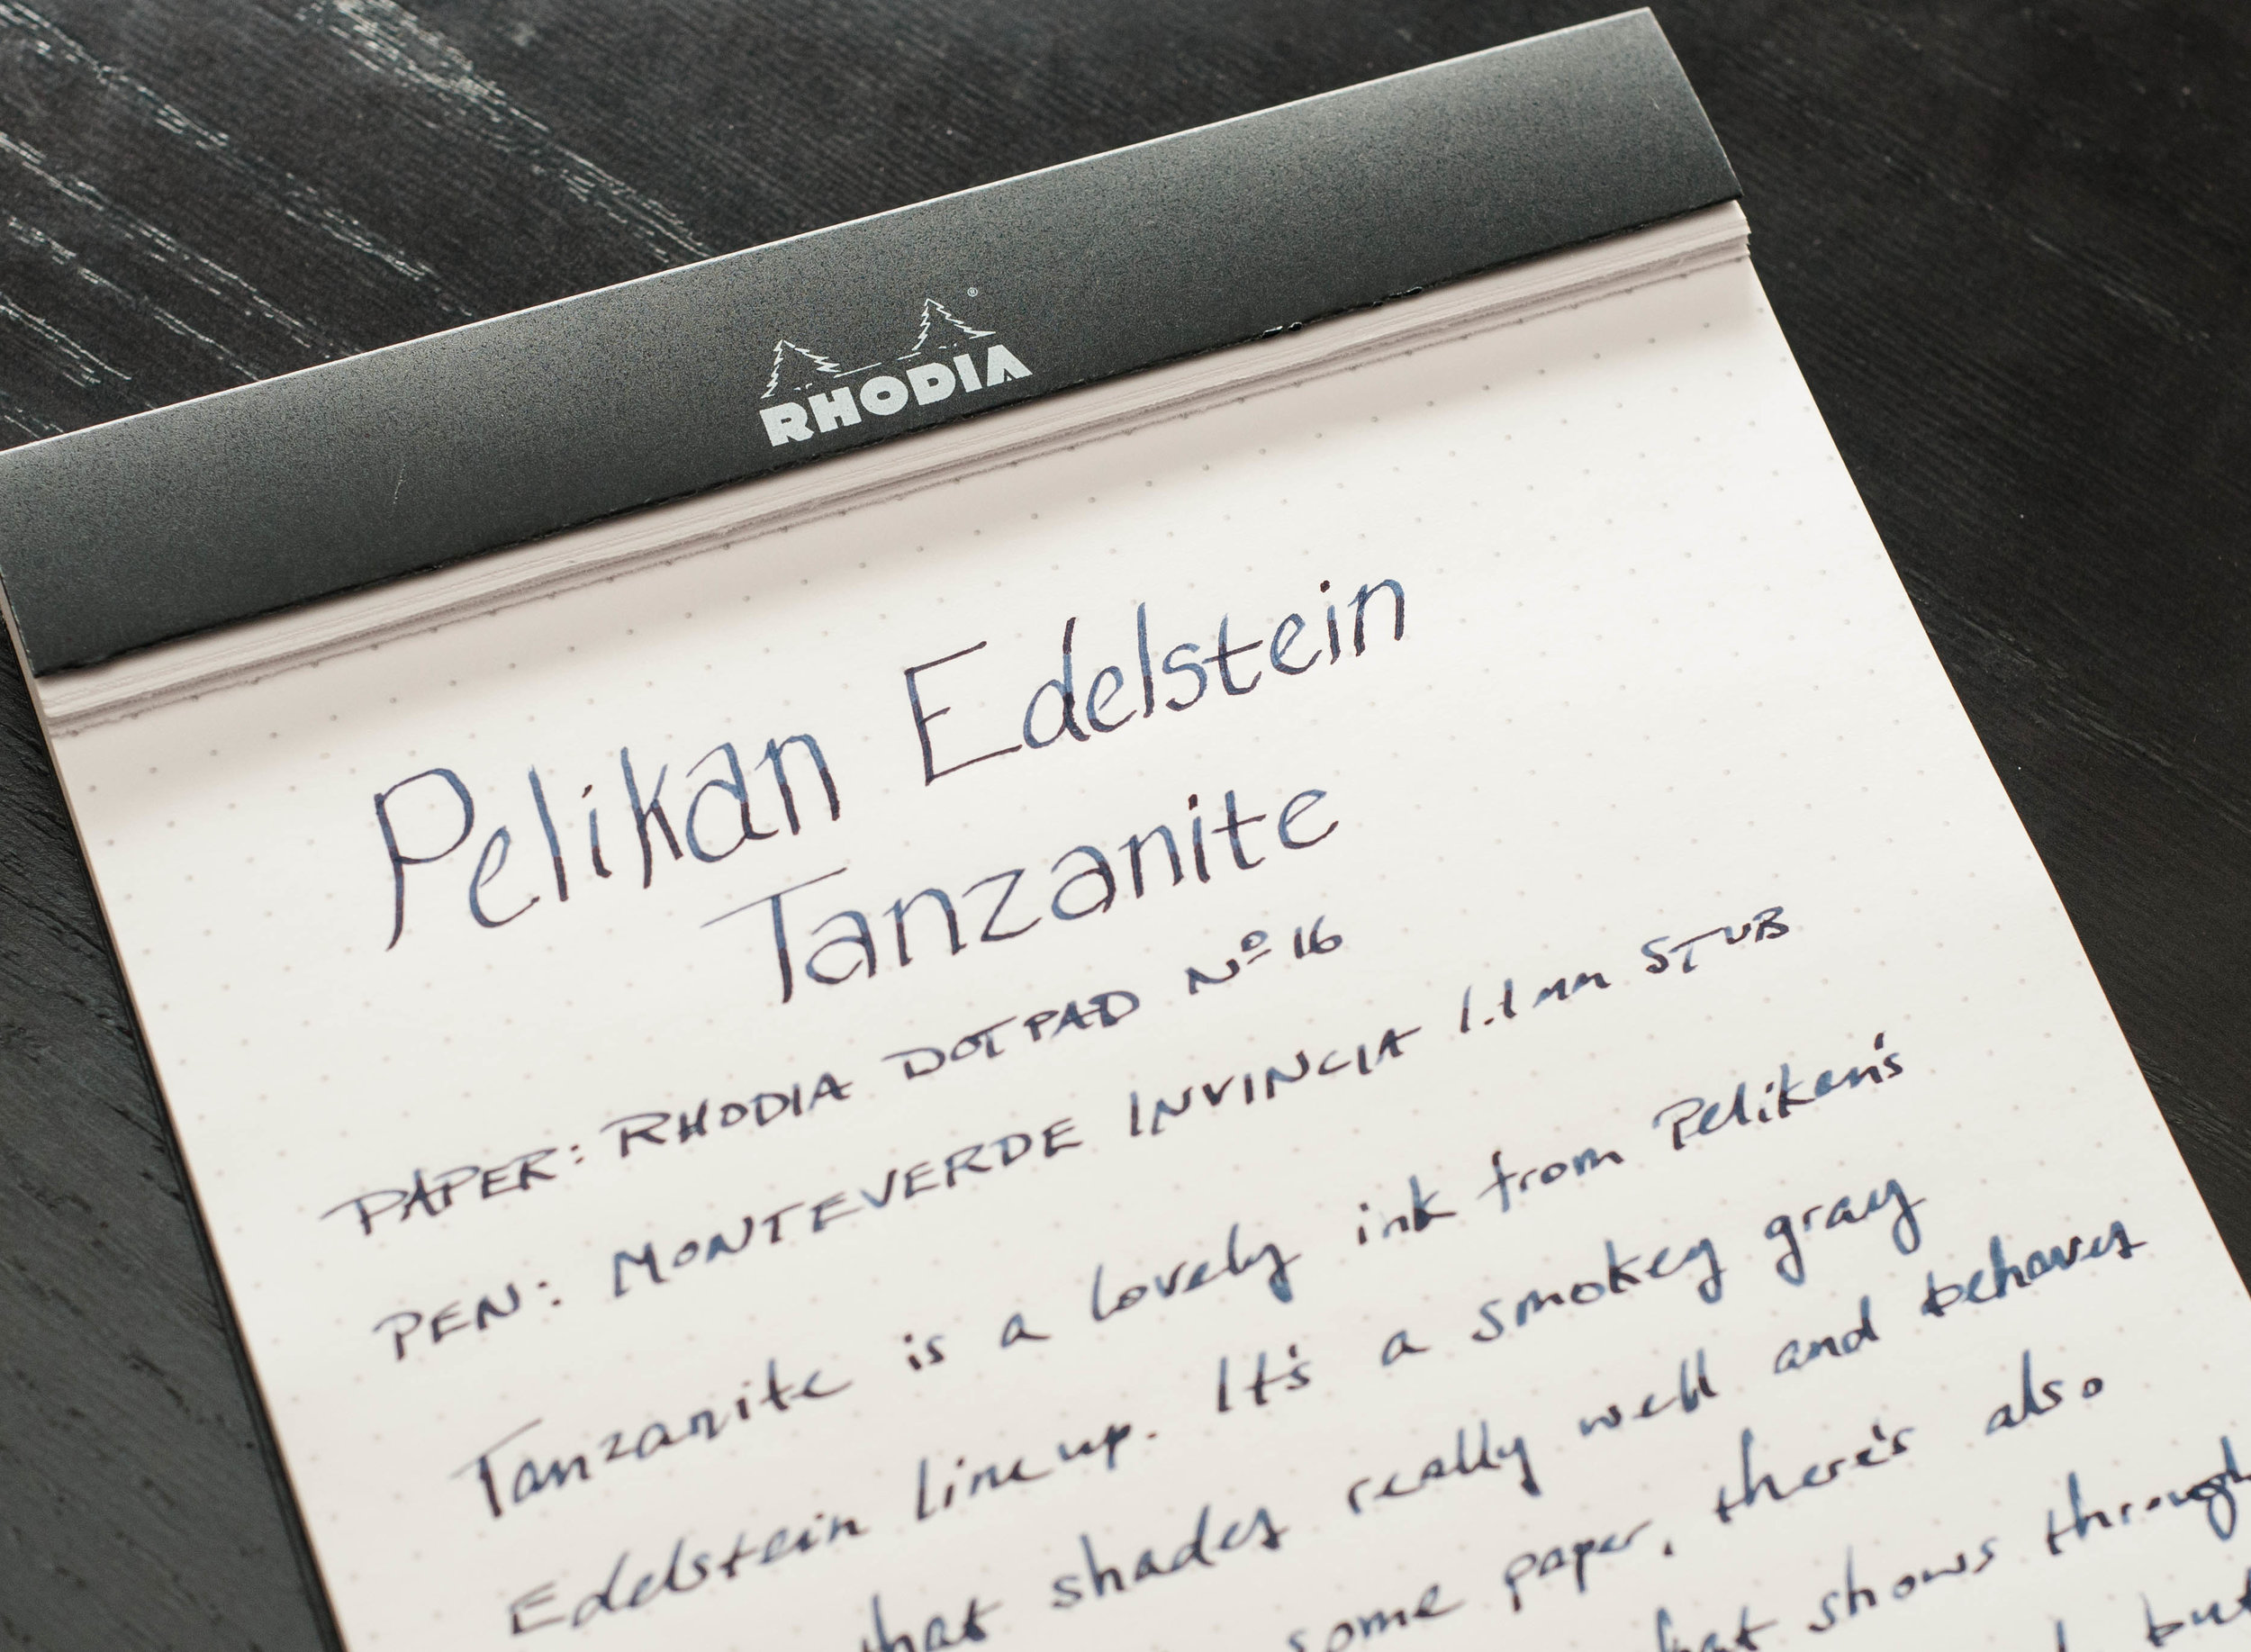 RHODIA
Pelikan Edelstein
Tanzanite
PAPER: RHODIA DOTPAD Nº 16
PEN: MONTEVERDE INVINCIA 1.1mm STUB
Tanzanite is a lovely ink from Pelikan's
Edelstein line up. It's a smokey gray
that shades really well and behaves
some paper, there's also
that shows through
but